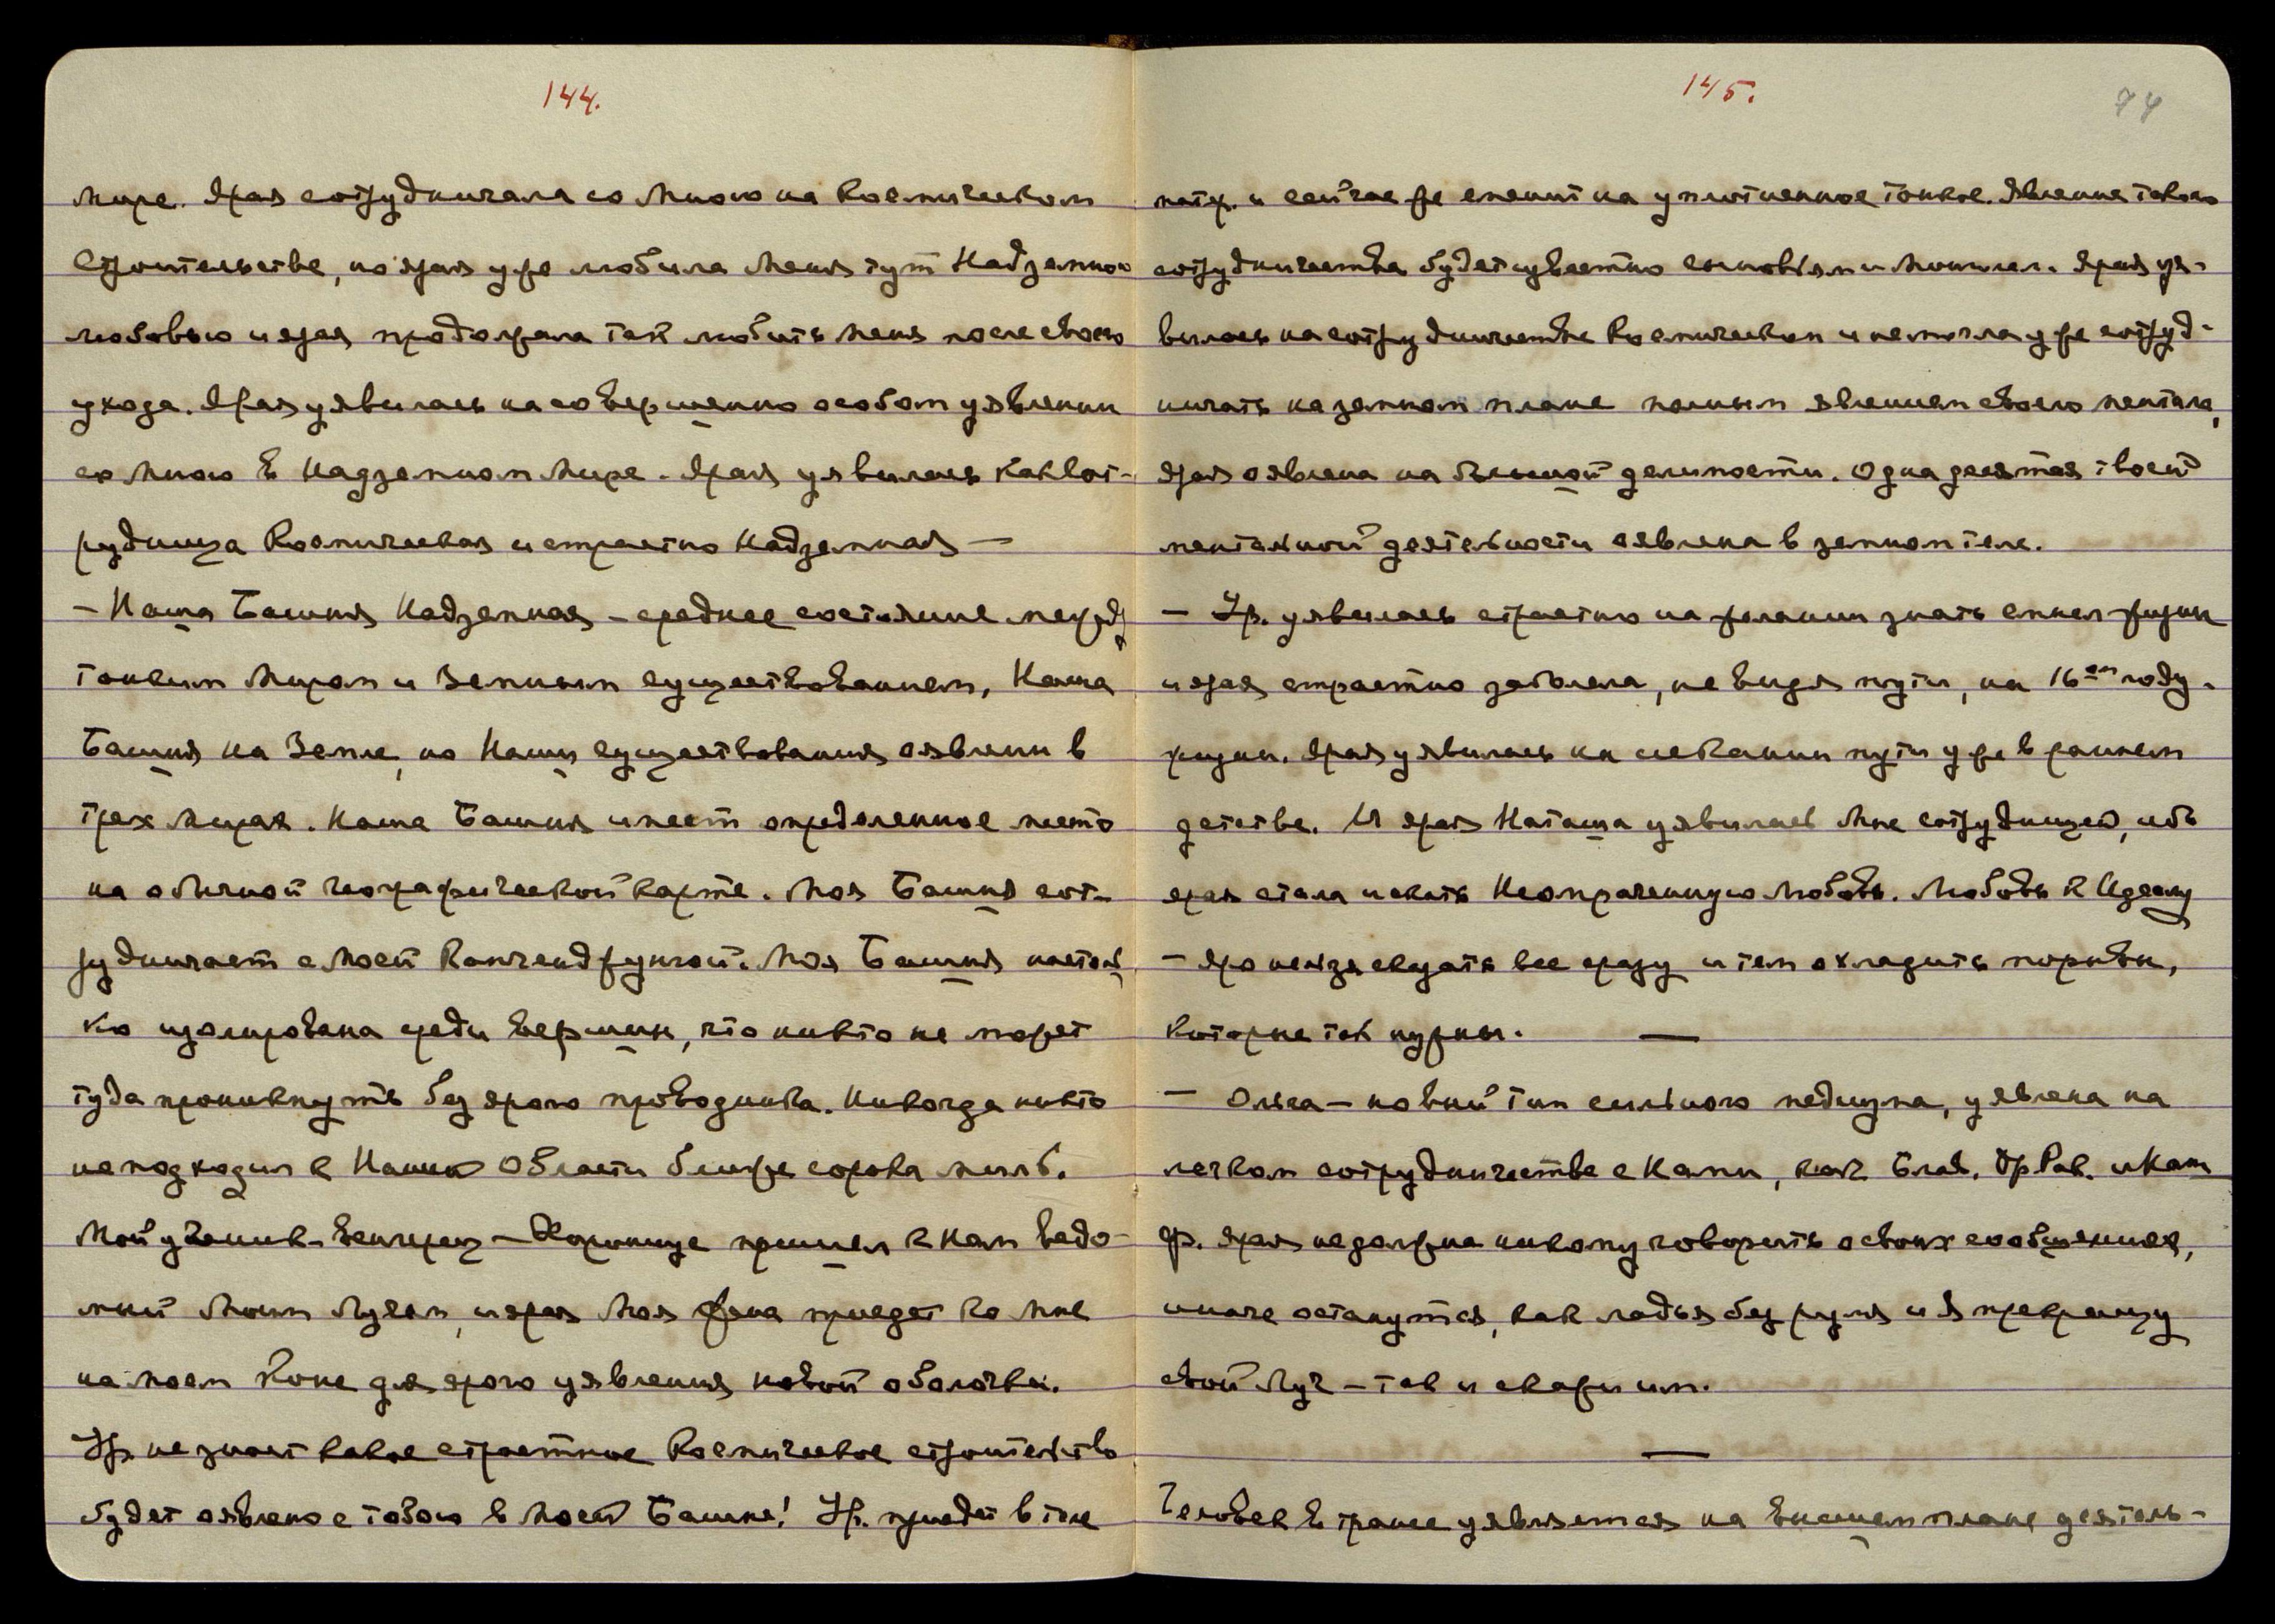 144.
Мире. Ярая сотрудничала со Мною на Космическом
строительстве, но ярая уже любила Меня тут Надземною
любовью и ярая продолжала так любить Меня после своего
ухода. Ярая уявилась на совершенно особом уявлении
со Мною в Надземном Мире. Ярая уявилась как сот-
рудница Космическая и страстно Надземная —
— Наша Башня Надземная – среднее состояние между
тонким Миром и Земным существованием, Наша
Башня на Земле, но Наши существования оявлены в
трех Мирах. Наша Башня имеет определенное место
на обычной географической карте. Моя Башня сот-
рудничает с Моей Канченджунгой. Моя Башня настоль
ко изолирована среди вершин, что никто не может
туда проникнуть без ярого проводника. Никогда никто
не подходил к Нашей Области ближе сорока миль.
Мой ученик – венгерец – Хорошце пришел к Нам ведо-
мый Моим Лучем, и ярая Моя жена приедет ко Мне
на Моем Коне для ярого уявления новой оболочки.
Ур. не знает какое страстное Космическое строительство
будет оявлено с тобою в Моей Башне! Ур. приедет в теле
145.
74
матер. и сейчас же сменит на уплотненное тонкое. Явление такого
сотрудничества будет известно сыновьям и Моим. Ярая уя-
вилась на сотрудничестве Космическом и не могла уже сотруд-
ничать на земном плане полным явлением своего ментала,
ярая оявлена на большой делимости. Одна десятая твоей
ментальной деятельности оявлена в земном теле.
— Ур. уявилась страстно на желании знать смысл жизни
и ярая страстно заболела, не видя пути, на 16ом году
жизни. Ярая уявилась на искании пути уже в раннем
детстве. И ярая Наташа уявилась Мне сотрудницей, ибо
ярая стала искать Неомраченную Любовь. Любовь к Идеалу
— Яро нельзя сказать все сразу и тем охладить порывы,
которые так нужны. —
— Ольга – новый тип сильного медиума, уявлена на
легком сотрудничестве с Нами, как Блав.
Ярая не должна никому говорить о своих сообщениях,
иначе останутся, как ладья без руля и Я прекращу
свой Луч – так и скажи им.
—
Человек в трансе уявляется на внешнем плане деятель-